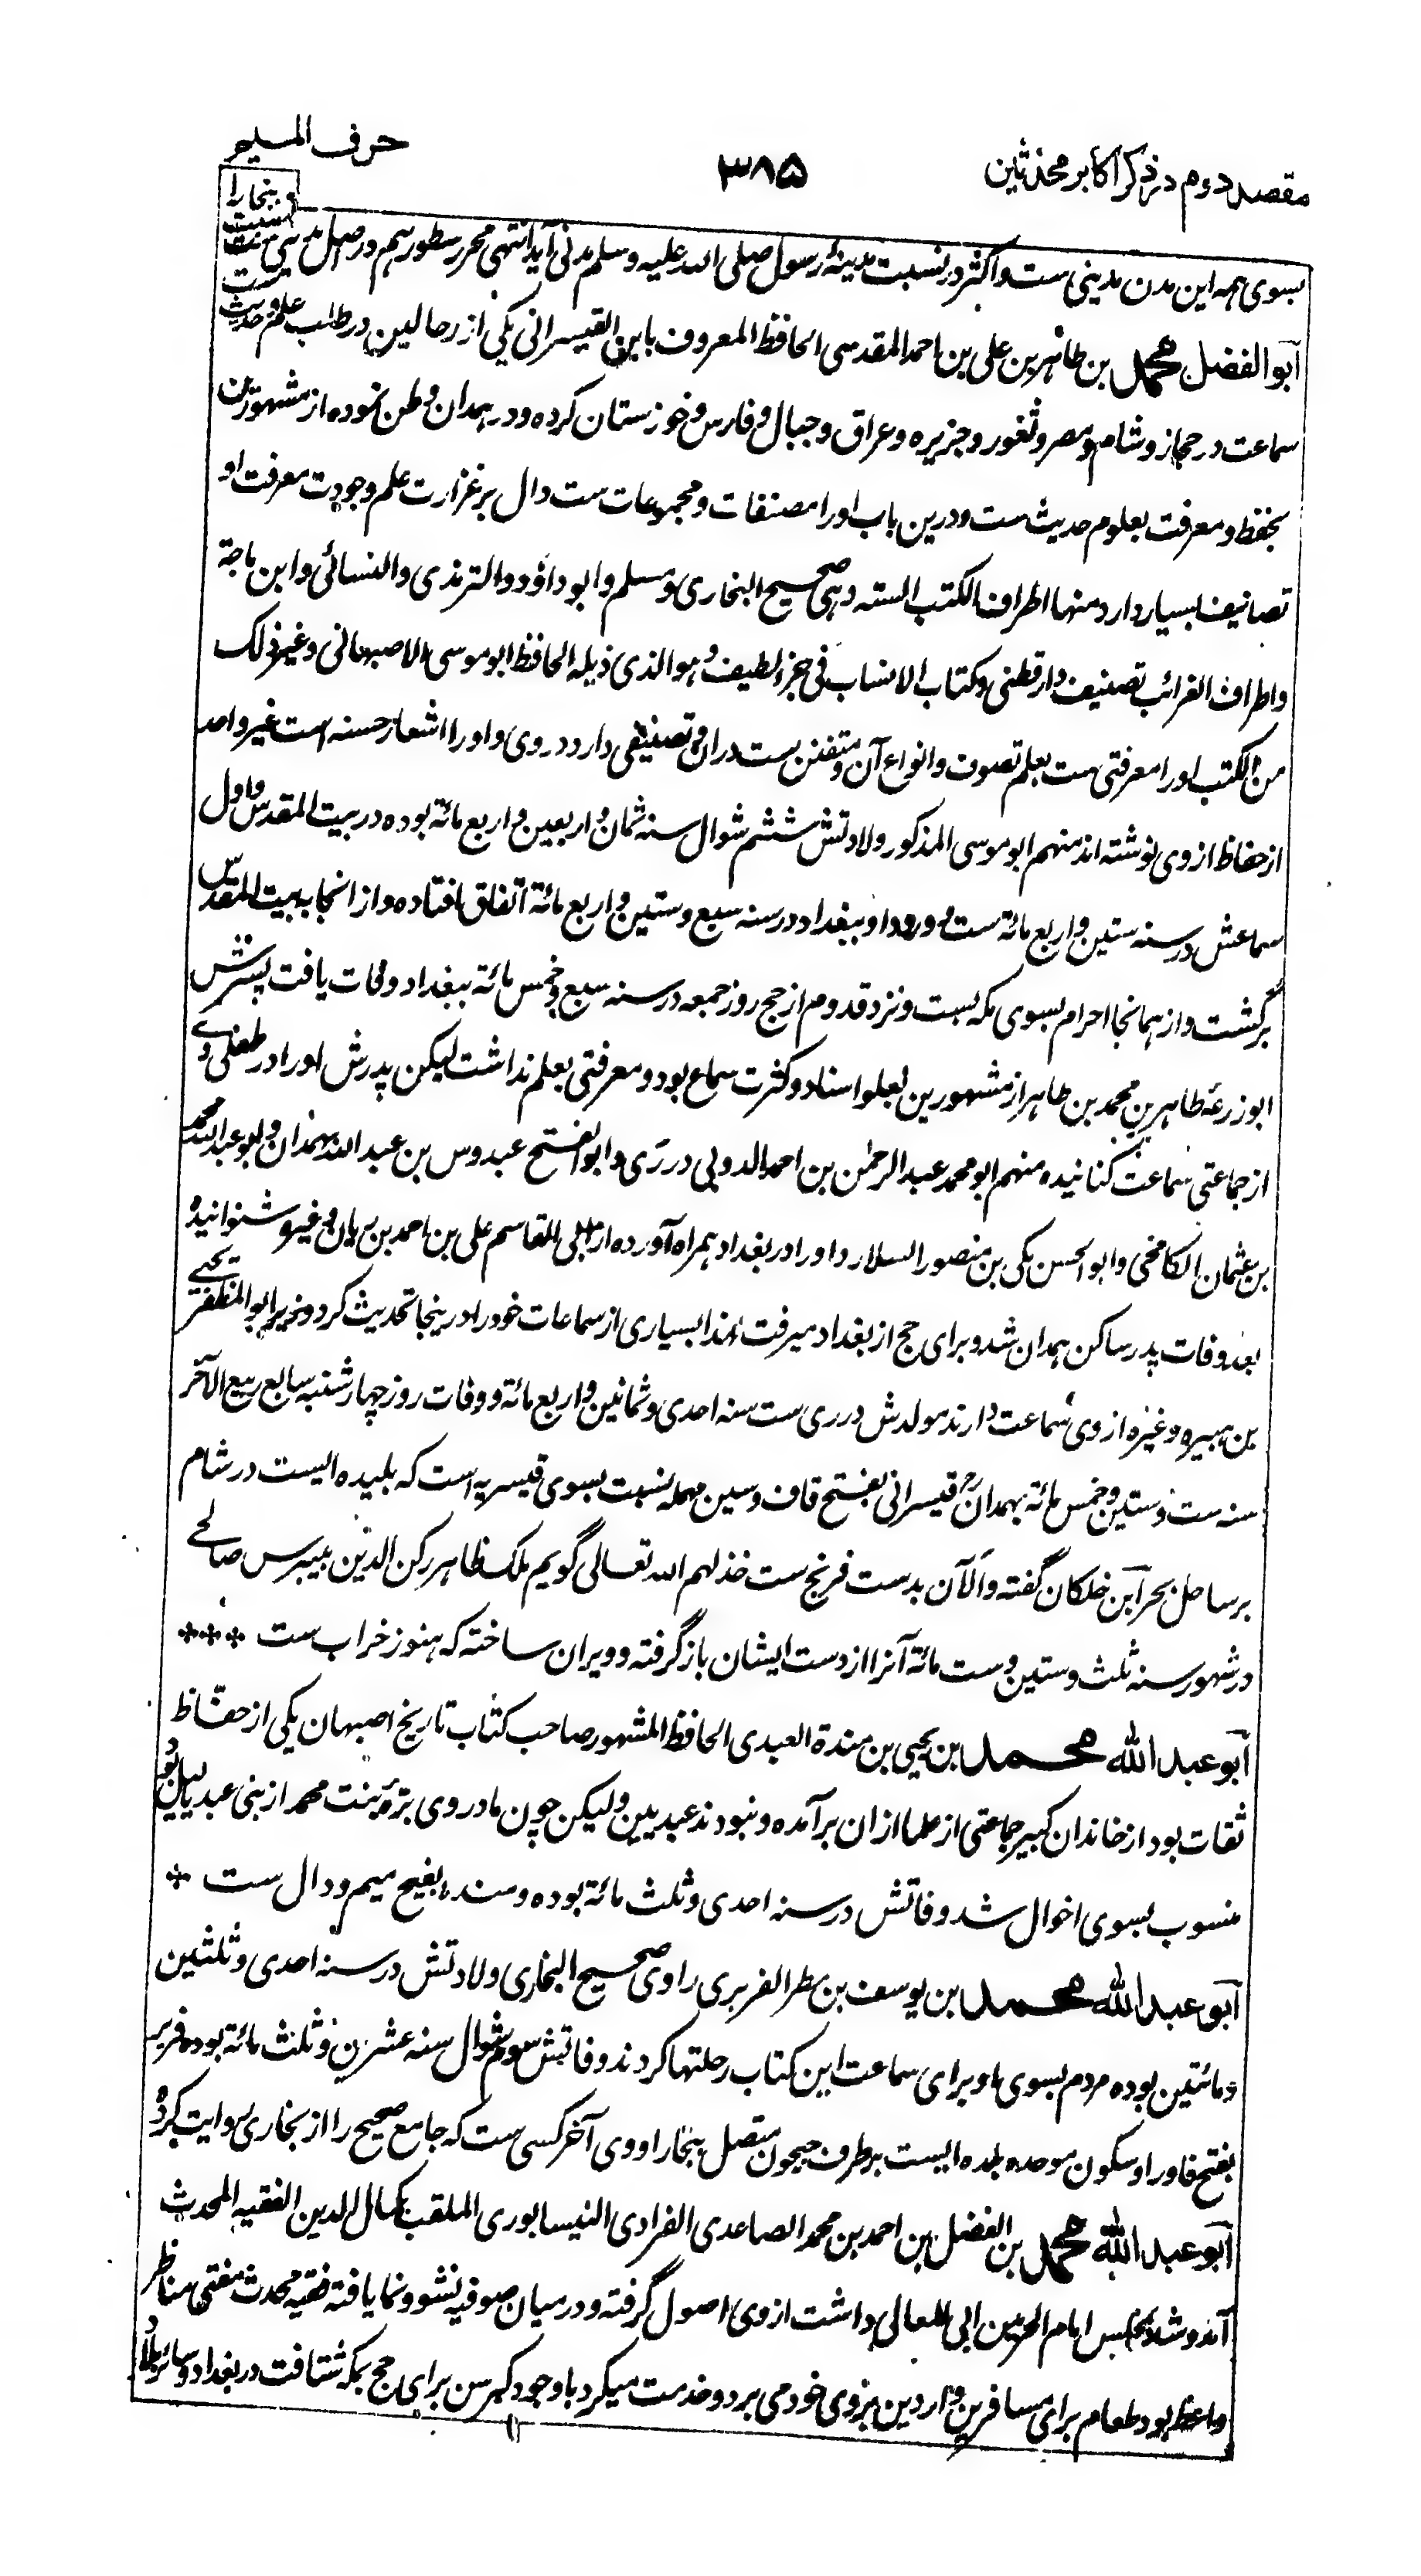 مقصد دوم در ذکر اکابر محدثین
۳۸۵
حرف المیم
بسوی همه این مدن مدینی ست واکثر در نسبت مدینهٔ رسول صلی الله علیه وسلم مدنی آید انتهی محرر سطور هم در اصل مدنی ست
بخارا
آبو الفضل محمد بن طاهر بن علی بن احمد المقدسی الحافظ المعروف بابن القیسرانی یکی از رحالین در طلب علم وحدیث ست
سماعت در حجاز وشام ومصر وثغور وجزیره وعراق وجبال وفارس وخوزستان کرده ودر همدان وطن نموده از مشهورین
بحفظ ومعرفت بعلوم حدیث ست ودرین باب اورا مصنفات ومجموعات ست دال بر غزارت علم وجودت معرفت او
تصانیف بسیار دارد منها اطراف الکتب السته وهی صحیح البخاری ومسلم وابو داؤد والترمذی والنسائی وابن ماجة
واطراف الغرائب تصنیف دارقطنی وکتاب الانساب فی جزء لطیف وهو الذی ذیله الحافظ ابو موسی الاصبهانی وغیر ذلک
من الکتب اورا معرفتی هست بعلم تصوف وانواع آن ومتفنن ست دران وتصنیفی دارد دروی واورا اشعار حسنه است غیر واحد
از حفاظ ازوی نوشته اند منهم ابو موسی المذکور ولادتش ششم شوال سنه ثمان واربعین واربع مائة بوده در بیت المقدس واول
سماعش در سنه ستین واربع مائة ست وورود او ببغداد در سنه سبع وستین واربع مائة اتفاق افتاده واز انجا به بیت المقدس
برگشت واز همانجا احرام بسوی مکه بست ونزد قدوم از حج روز جمعه در سنه سبع وخمس مائة ببغداد وفات یافت پسرش
ابو زرعه طاهر بن محمد بن طاهر از مشهورین بعلو اسناد وکثرت سماع بود ومعرفتی بعلم نداشت لیکن پدرش اورا در طفلی وے
از جماعتی سماعت کنانیده منهم ابو محمد عبد الرحمٰن بن احمد الدوبی در رَی وابو الفتح عبدوس بن عبد الله بهمدان وابو عبد الله محمد
بن عثمان الکامخی وابو الحسن مکی بن منصور السلار واورا در بغداد همراه آورده از ابی القاسم علی بن احمد بن بیان وغیره شنوانیده
بعد وفات پدر ساکن همدان شد وبرای حج از بغداد میرفت لهذا بسیاری از سماعات خود را درینجا تحدیث کرد وزیر ابو المظفر یحیی
بن هبیره وغیره ازوی سماعت دارند مولدش در ری ست سنه احدی وثمانین واربع مائة ووفات روز چهارشنبه سابع ربیع الآخر
سنه ست وستین وخمس مائة بهمدان رح قیسرانی بفتح قاف وسین مهمله نسبت بسوی قیسریه است که بلیده ایست در شام
بر ساحل بحر آبن خلکان گفته والآن بدست فرنج ست خذلهم الله تعالی گویم ملک ظاهر رکن الدین بیبرس صالحے
در شهور سنه ثلث وستین وست مائة آنرا از دست ایشان باز گرفته وویران ساخته که هنوز خراب ست ***
آبو عبد الله محمد بن یحیی بن مندة العبدی الحافظ المشهور صاحب کتاب تاریخ اصبهان یکی از حفاظ
ثقات بود از خاندان کبیر جماعتی از علما ازان برآمده ونبودند عبدیین ولیکن چون مادر وی برّه بنت محمد از بنی عبد یالیل بود
منسوب بسوی اخوال شد وفاتش در سنه احدی وثلث مائة بوده ومنده بفتح میم ودال ست *
آبو عبد الله محمد بن یوسف بن مطر الفربری راوی صحیح البخاری ولادتش در سنه احدی وثلثین
ومائتین بوده مردم بسوی او برای سماعت این کتاب رحلتها کردند وفاتش سوم شوال سنه عشرین وثلث مائة بوده فربر
بفتح فا ورا وسکون موحده بلده ایست بر طرف جیحون متصل بخارا ووی آخر کسی ست که جامع صحیح را از بخاری روایت کرده
آبو عبد الله محمد بن الفضل بن احمد بن محمد الصاعدی الفراوی النیسابوری الملقب بکمال الدین الفقیه المحدث
آمد وشد بمجلس امام الحرمین ابی المعالی داشت ازوی اصول گرفته ودر میان صوفیه نشو ونما یافته فقیه محدث مفتی مناظر
واعظ بود طعام برای مسافرین وواردین بروی خود می برد وخدمت میکرد با وجود کبر سن برای حج بمکه شتافت در بغداد وسائر بلاد